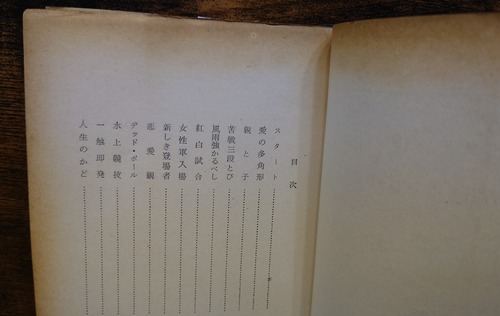 目次
スタート
愛の多角形
親と子
苦戦三段とび
風雨強かるべし
紅白試合
女性軍入場
新しき登場者
恋愛観
デッド・ボール
水上競技
一触即発
人生のかど